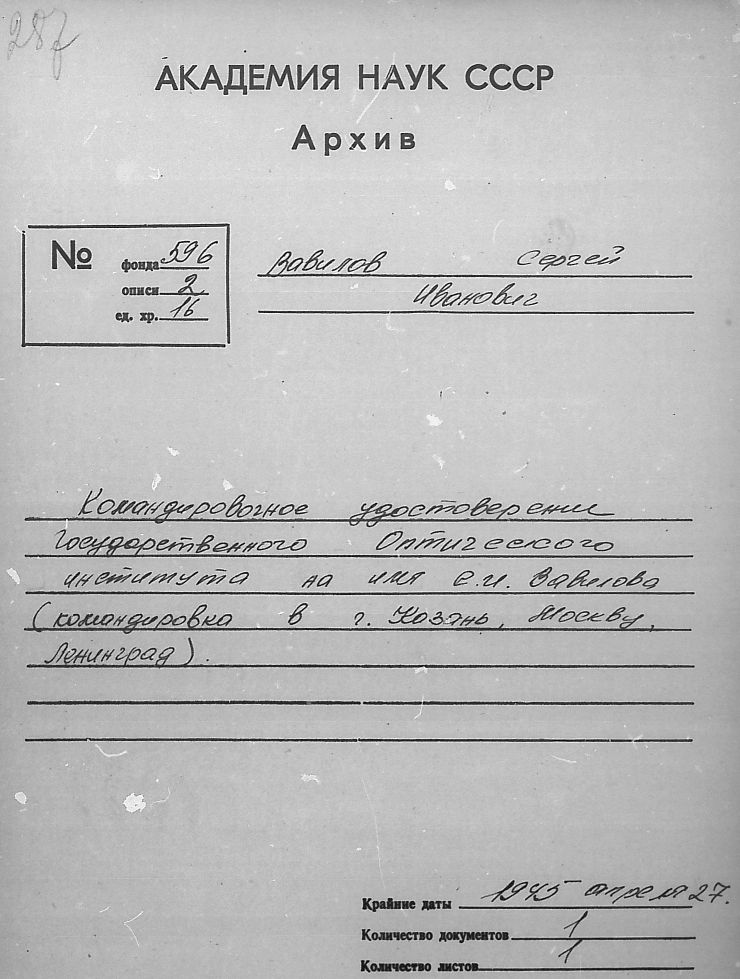 287
АКАДЕМИЯ НАУК СССР
Архив
№ фонда 596
описи 2
ед. хр. 16
Вавилов Сергей
Иванович
Командировочное удостоверение
Государственного Оптического
института на имя С.И. Вавилова
(командировка в г. Казань, Москву,
Ленинград).
Крайние даты 1945 апреля 27.
Количество документов 1
Количество листов 1